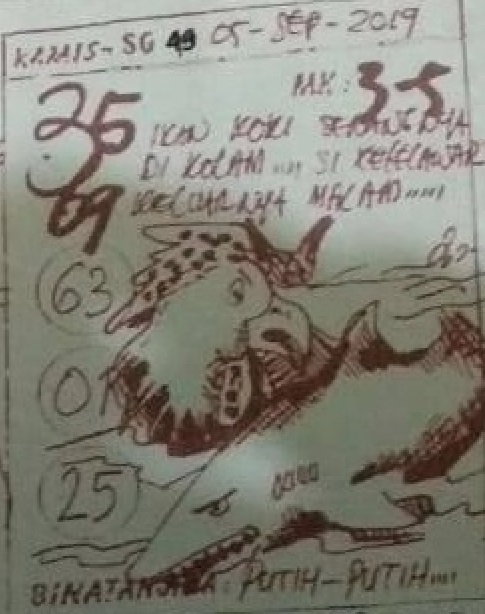 KAMIS-SG 49 05-SEP-2019
MK: 35
25
IKAN KOKI SENANGNYA
DI KOLAM.... SI KELELAWAR
69
KELUARNYA MALAM.....
63
01
25
BINATANGNYA: PUTIH-PUTIH....